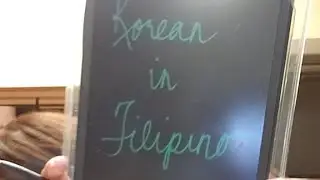 Korean
in
Filipino